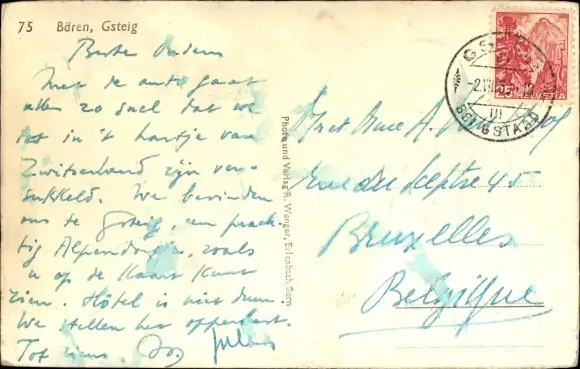 75 Bären, Gsteig
Beste Ouders
Met de auto gaat
alles zo snel dat we
tot in 't hartje van
Zwitserland zijn ver-
sukkeld. We bevinden
ons te Gsteig, een prach-
tig Alpendorpje, zoals
u op de kaart kunt
zien. Hôtel is niet duur.
We stellen het opperbest.
Tot ziens
Jules
Photo und Verlag R. Wenger, Erlenbach, Bern
GSTEIG
BEI GSTAAD
HELVETIA
25
Rue du Sceptre 45
Bruxelles
Belgique